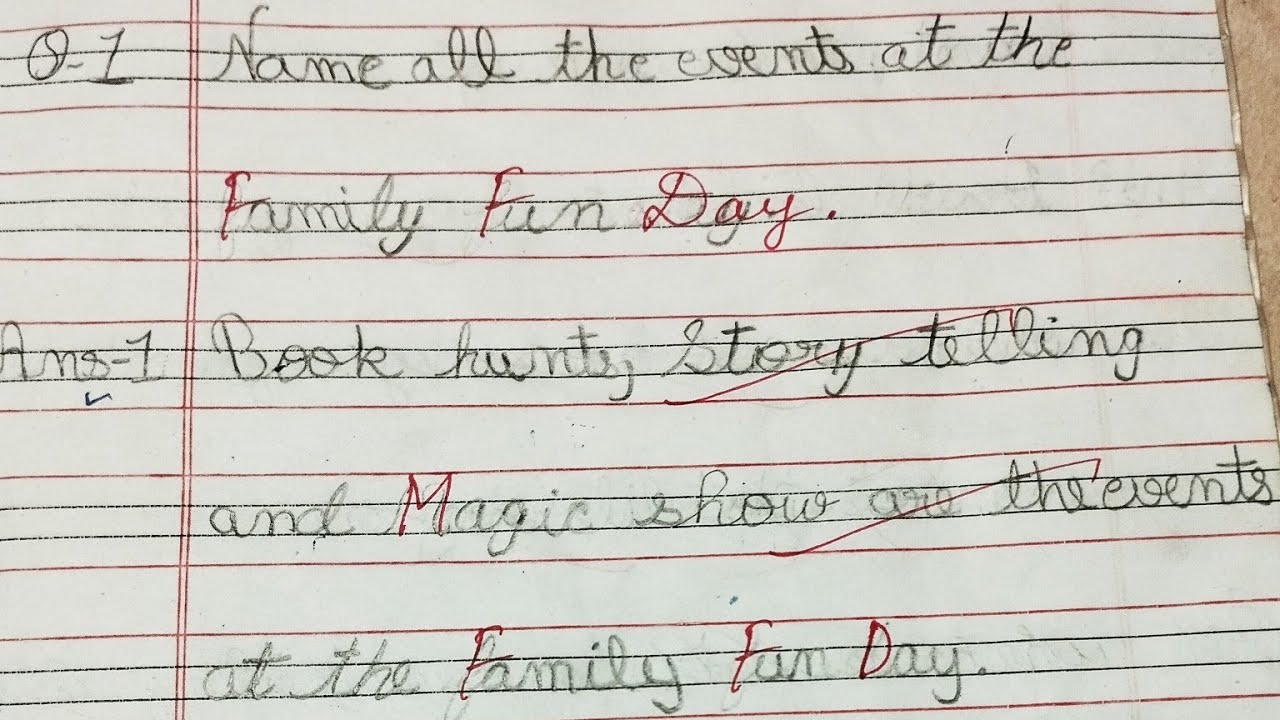 Q-1 Name all the events at the
Family Fun Day.
Ans-1 Book hunts, Story telling
and Magic show are the events
at the Family Fun Day.